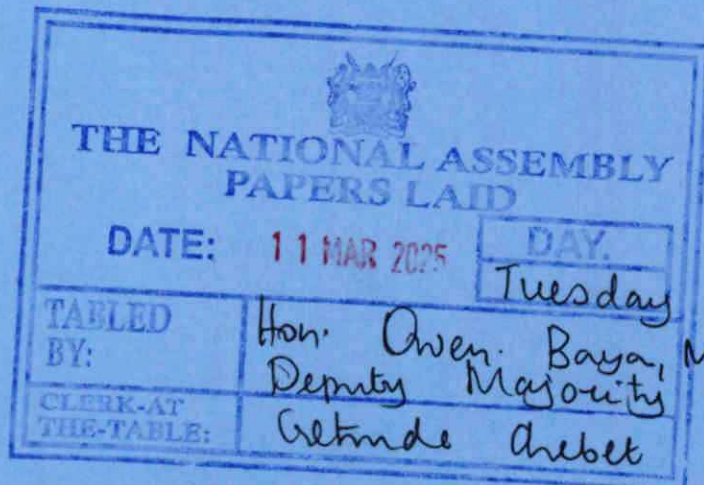 THE NATIONAL ASSEMBLY
PAPERS LAID
DATE: 11 MAR 2025 DAY.
Tuesday
TABLED BY: Hon. Owen. Baya, M
Deputy Majority
CLERK-AT THE-TABLE: Getrude Chebet